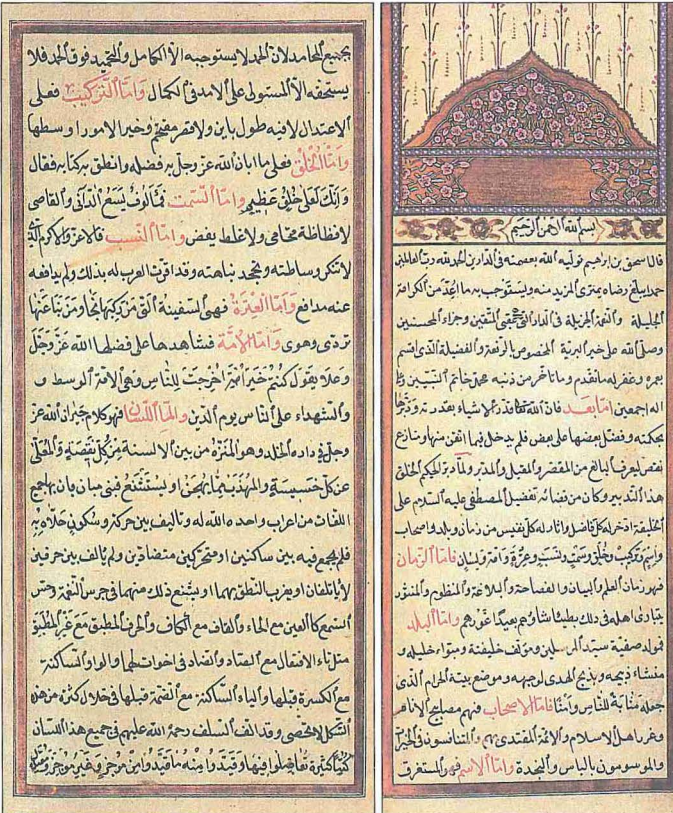 بسم الله الرحمن الرحيم
قال اسحق بن ابرهيم توليه الله بعصمته في الدارين الحمد لله رب العالمين
حمدا يبلغ رضاه يمترى المزيد منه ويستوجب به ما اعد من الكرامة
الجليلة والنعمة الجزيلة في الدار التي هي عقبى المتقين وجزاء المحسنين
وصلى الله على خير البرية المخصوص بالرفعة والفضيلة الذى اقسم
بعمره وغفر له ما تقدم وما تأخر من ذنبه محمد خاتم النبيين وعلى
اله اجمعين اما بعد فان الله قدر الاشياء بقدرته ودبرها
بحكمته وفضل بعضها على بعض فلم يدخل فيما اتقن منها ومنازع
نقص ليعرف البالغ من المقصر والمقبل والمدبر وأن الحكيم الخلق
هذا التدبير وكان من قضائه تفضيل المصطفى عليه السلام على
الخليقة اذخر له كل فاضل واثار له كل نفيس من زمان وبلد واصحاب
واسم وتركيب وخلق وسمت ونسب وعترة وامة ولسان فاما الزمان
فهو زمان العلم والبيان والفصاحة والبلاغة والمنظوم والمنثور
يتبارى اهله في ذلك بطيئا شاؤهم بعيدا غورهم واما البلد
فمولد صفيه سيد المرسلين ومؤلف خليفته ومبتواء خليله و
منشاء ذبيحه وبذبح الهدى لوجهه وموضع بيته الحرام الذى
جعله مثابة للناس وأمنا فاما الاصحاب فهم مصابيح الانام
وغر اهل الاسلام والائمة المقتدى بهم والمتنافسون في الخير
والموسومون بالباس والنجدة واما الاسم فهو المستغرق
بجميع المحامد لان الحمد لا يستوجبه الا الكامل والتحميد فوق الحمد فلا
يستحقه الا المستولى على الامد في الكمال واما التركيب فعلى
الاعتدال لا فيه طول باين ولا قصر مقتحم وخير الامور اوسطها
واما الخلق فعلى ما ابان الله عز وجل به فضله وانطق به كتابه فقال
وانك لعلى خلق عظيم واما السمت فمألوف يسع الدانى والقاصى
لا فظاظة تحامى ولا غلظ يغض واما النسب فالاعز والاكرم الذى
لا تنكر وساطته ولا تجحد نباهته وقد اقرت العرب له بذلك ولم يدافعه
عنه مدافع واما العترة فهى السفينة التى من ركبها نجا ومن تباعد عنها
تردى وهوى واما الامة فشاهدها على فضلها الله عز وجل
وعلا بقول كنتم خير امة اخرجت للناس وهى الامة الوسط و
والشهداء على الناس يوم الدين واما اللسان فهو كلام جيران الله عز
وجل في داره الخلد وهو المنزه من بين الالسنة من كل نقيصة والمعلى
عن كل خسيسة والمهذب مما يهجن او يستشنع فبنى مبان بان بها جميع
اللغات من اعراب واحده الله له وتاليف بين حركة وسكون حلاه به
فلم يجمع فيه بين ساكنين او متحركين متضادين ولم يالف بين حرفين
لا يأتلفان او يعذب النطق بهما او يشنع ذلك منهما في جرس النغمة وحس
السمع كالغين مع الحاء والقاف مع الكاف والحرف المطبق مع غير المطبق
مثل تاء الافتعال مع الصاد والضاد في اخوات لهما والواو الساكنة
مع الكسرة قبلها والياء الساكنة مع الضمة قبلها في خلال كثيرة من هذه
الشكل لا تحصى وقد الف السلف رحمة الله عليهم في جميع هذا اللسان
كتبا كثيرة تفاضلوا فيها وقيدوا منه ما قيدوا من موجز وغير موجز